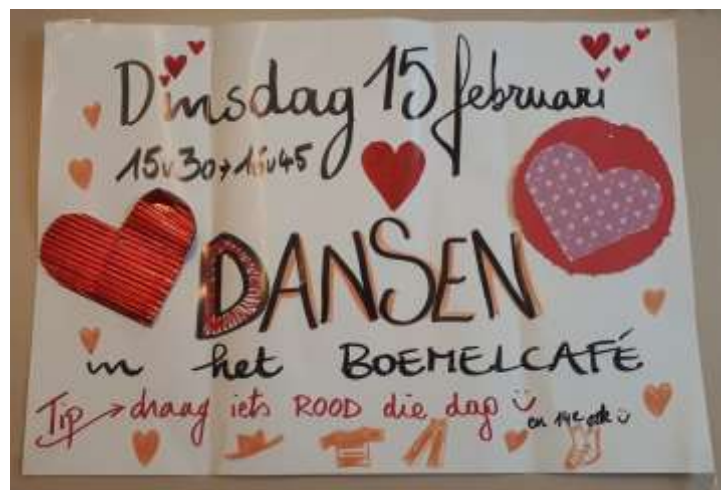 Dinsdag 15 februari
15u30→16u45
DANSEN
in het BOEMELCAFÉ
Tip → draag iets ROOD die dag en 14e ook